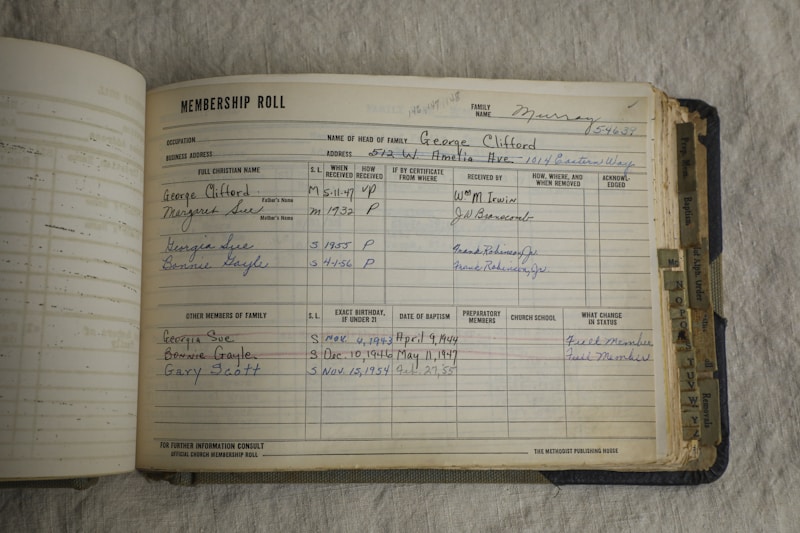 MEMBERSHIP ROLL
FAMILY NAME Murray
54639
OCCUPATION NAME OF HEAD OF FAMILY George Clifford
BUSINESS ADDRESS ADDRESS 512 W Amelia Ave. 1014 Eastern Way
FULL CHRISTIAN NAME S. L. WHEN RECEIVED HOW RECEIVED IF BY CERTIFICATE FROM WHERE RECEIVED BY HOW, WHERE, AND WHEN REMOVED ACKNOWL-EDGED
George Clifford M 5-11-47 VP Wm M Irwin
Father's Name
Margaret Sue m 1932 P J W Branscomb
Mother's Name
Georgia Sue S 1955 P Frank Robinson, Jr.
Bonnie Gayle S 4-1-56 P Frank Robinson, Jr.
OTHER MEMBERS OF FAMILY S. L. EXACT BIRTHDAY, IF UNDER 21 DATE OF BAPTISM PREPARATORY MEMBERS CHURCH SCHOOL WHAT CHANGE IN STATUS
Georgia Sue S Nov. 4, 1943 April 9, 1944 Full Member
Bonnie Gayle S Dec. 10, 1946 May 11, 1947 Full Member
Gary Scott S Nov. 15, 1954 27, 55
FOR FURTHER INFORMATION CONSULT
OFFICIAL CHURCH MEMBERSHIP ROLL THE METHODIST PUBLISHING HOUSE
Baptism
Mc
N
O
Removals